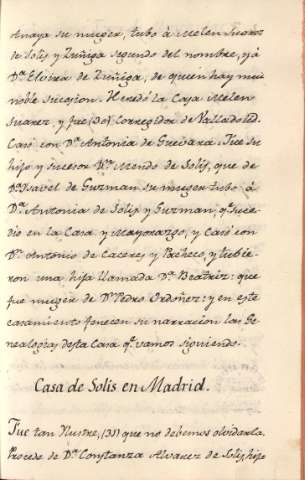 Anaya su muger, tubo à Melen Suarez
de Solis y Zuñiga segundo del nombre, y à
Dª Elvira de Zuñiga, de quien hay mui
noble sucesion. Heredó la Casa Melen
Suarez y fue (30) Corregidor de Valladolid.
Casó con Dª Antonia de Guevara. Fue su
hijo y sucesor Dn. Mendo de Solis, que de
Dª Ysavel de Guzman su muger tubo à
Dª Antonia de Solis y Guzman, qe. suce-
dio en la Casa y Mayorazgo, y Casó con
Dn. Antonio de Caceres y Pacheco, y tubie-
ron una hija llamada Dª Beatriz: que
fue muger de Dn. Pedro Ordoñez: y en este
casamiento fenecen su narracion las Ge-
nealogias desta Casa qe. vamos siguiendo.
Casa de Solis en Madrid.
Fue tan Ilustre, (31) que no debemos olvidarla.
Procede de Dª Constanza Alvarez de Solis, hija